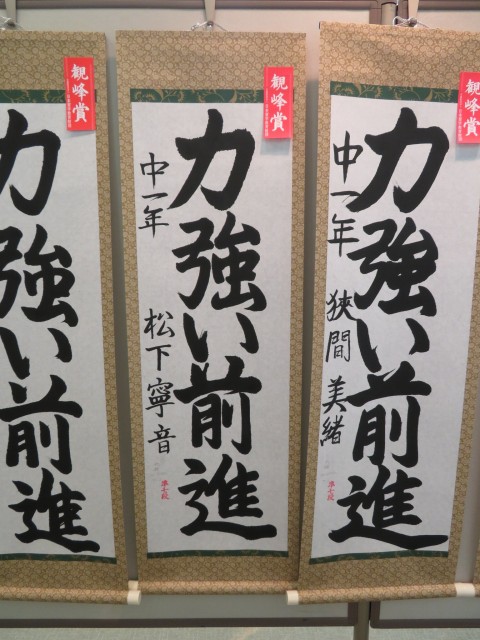 観峰賞
力強い前進
観峰賞
力強い前進
中一年 松下寧音
準七段
観峰賞
力強い前進
中一年 狭間美緒